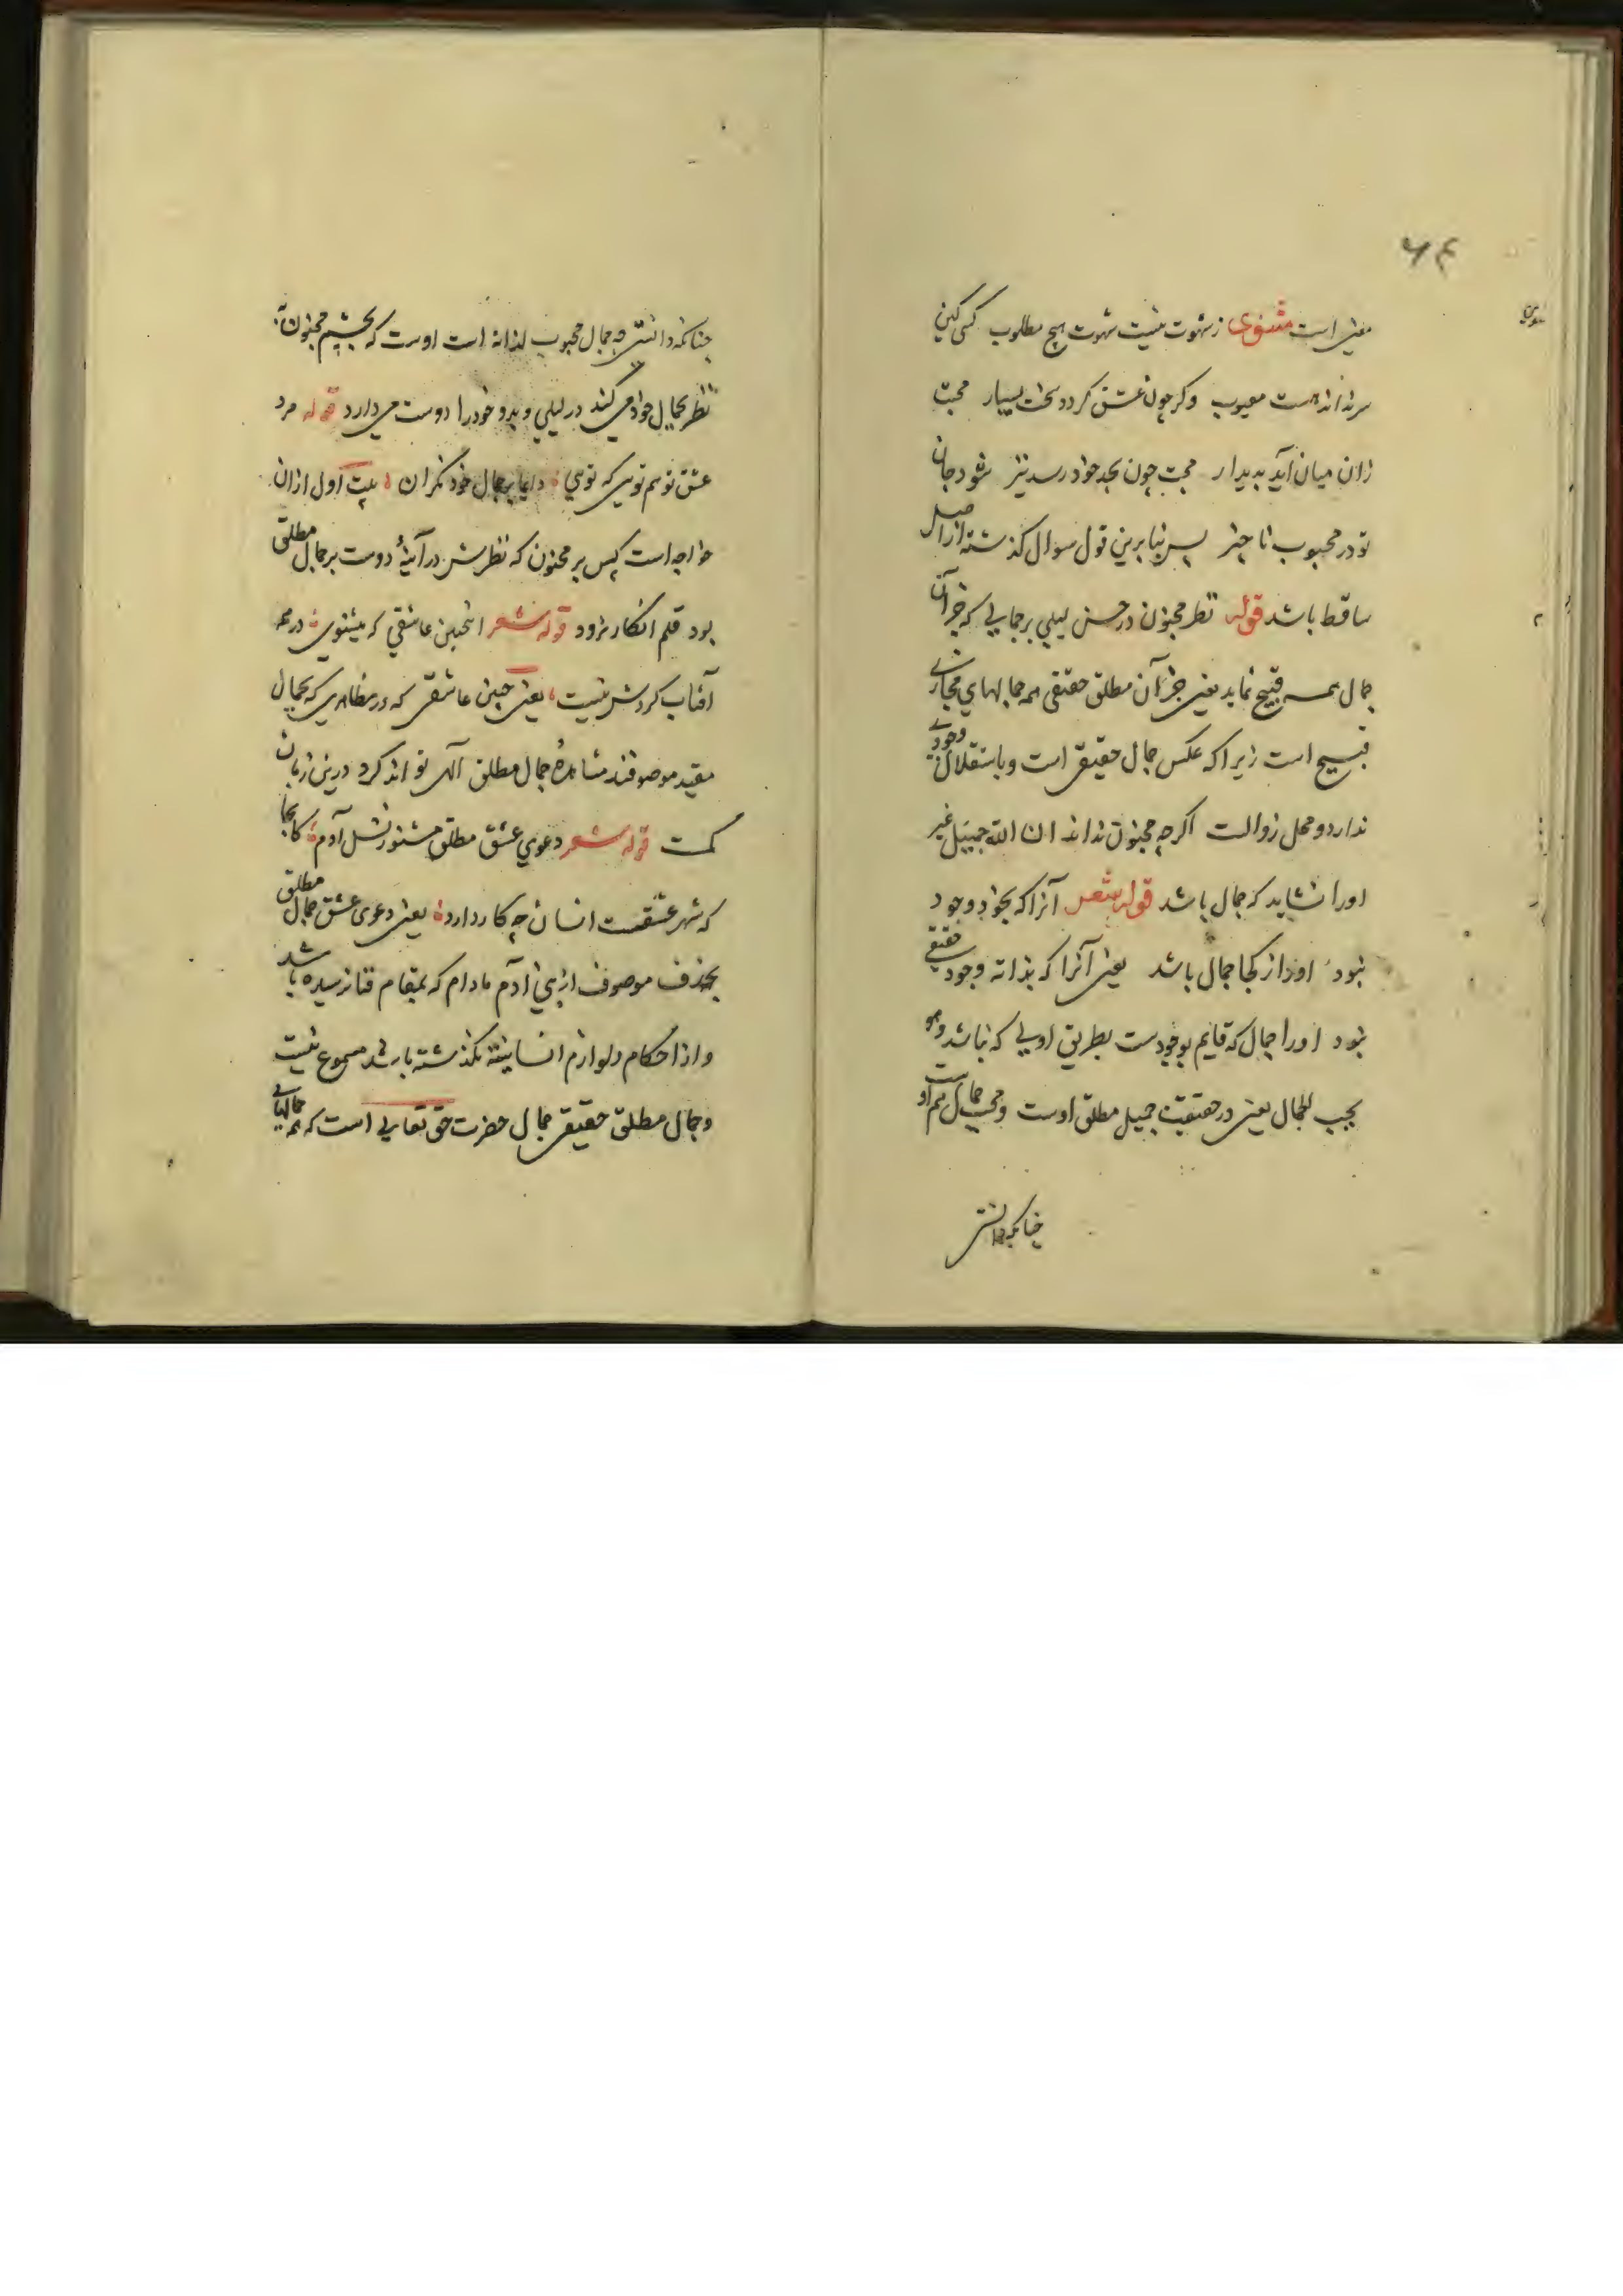 ۶۴
معنی است مثنوی ز شهوت نیست شهوت هیچ مطلوب کسی کین
سر نداند هست معیوب وکر چون عشق کردد سخت بسیار محبت
زان میان آید بدیدار محبت چون بحد خود رسد نیز شود جان
تو در محبوب ناچیز پس بنا برین قول سوال کذشته از اصل
ساقط باشد قوله نظر مجنون در حسن لیلی بر جمالی که جز آن
جمال همه قبیح نماید یعنی جز آن مطلق حقیقی همه جمالهای مجازی
قبیح است زیرا که عکس جمال حقیقی است و باستقلال وجودی
ندارد و محل زوالت اکرچه مجنون نداند ان الله جمیل غیر
اورا نشاید که جمال باشد قوله شعر آنرا که بخود وجود
نبود اورا از کجا جمال باشد یعنی آنرا که بذاته وجود حقیقی
نبود اورا جمال که قایم بوجودست بطریق اولی که نباشد وهو
یحب الجمال یعنی در حقیقت جمیل مطلق اوست و محب جمال هم اوست
چنانکه دانستی
چنانکه دانستی چه جمال محبوب لذاته است اوست که بچشم مجنون
نظر بجمال خود می کند در لیلی و بدو خود را دوست می دارد قوله مرد
عشق تو هم تویی که تویی دایما بر جمال خود نکران بیت اول ازان
خواجه است پس بر مجنون که نظرش در آینهٔ دوست بر جمال مطلق
بود قلم انکار نرود قوله شعر اینچنین عاشقی که میشنوی در همه
آفتاب کردش نیست یعنی چنین عاشقی که در مظاهری که بجمال
مقید موصوفند مشاهدهٔ جمال مطلق آلهی تواند کرد درین زمان
کمست قوله شعر دعوی عشق مطلق مشنو ز نسل آدم کانجا
که شهر عشقست انسان چه کار دارد یعنی دعوی عشق جمال مطلق
موصوف از بنی آدم مادام که بمقام فنا نرسیده باشد
و از احکام و لوازم انسانیته نکذشته باشد مسموع نیست
و جمال مطلق حقیقی جمال حضرت حق تعالی است که همه